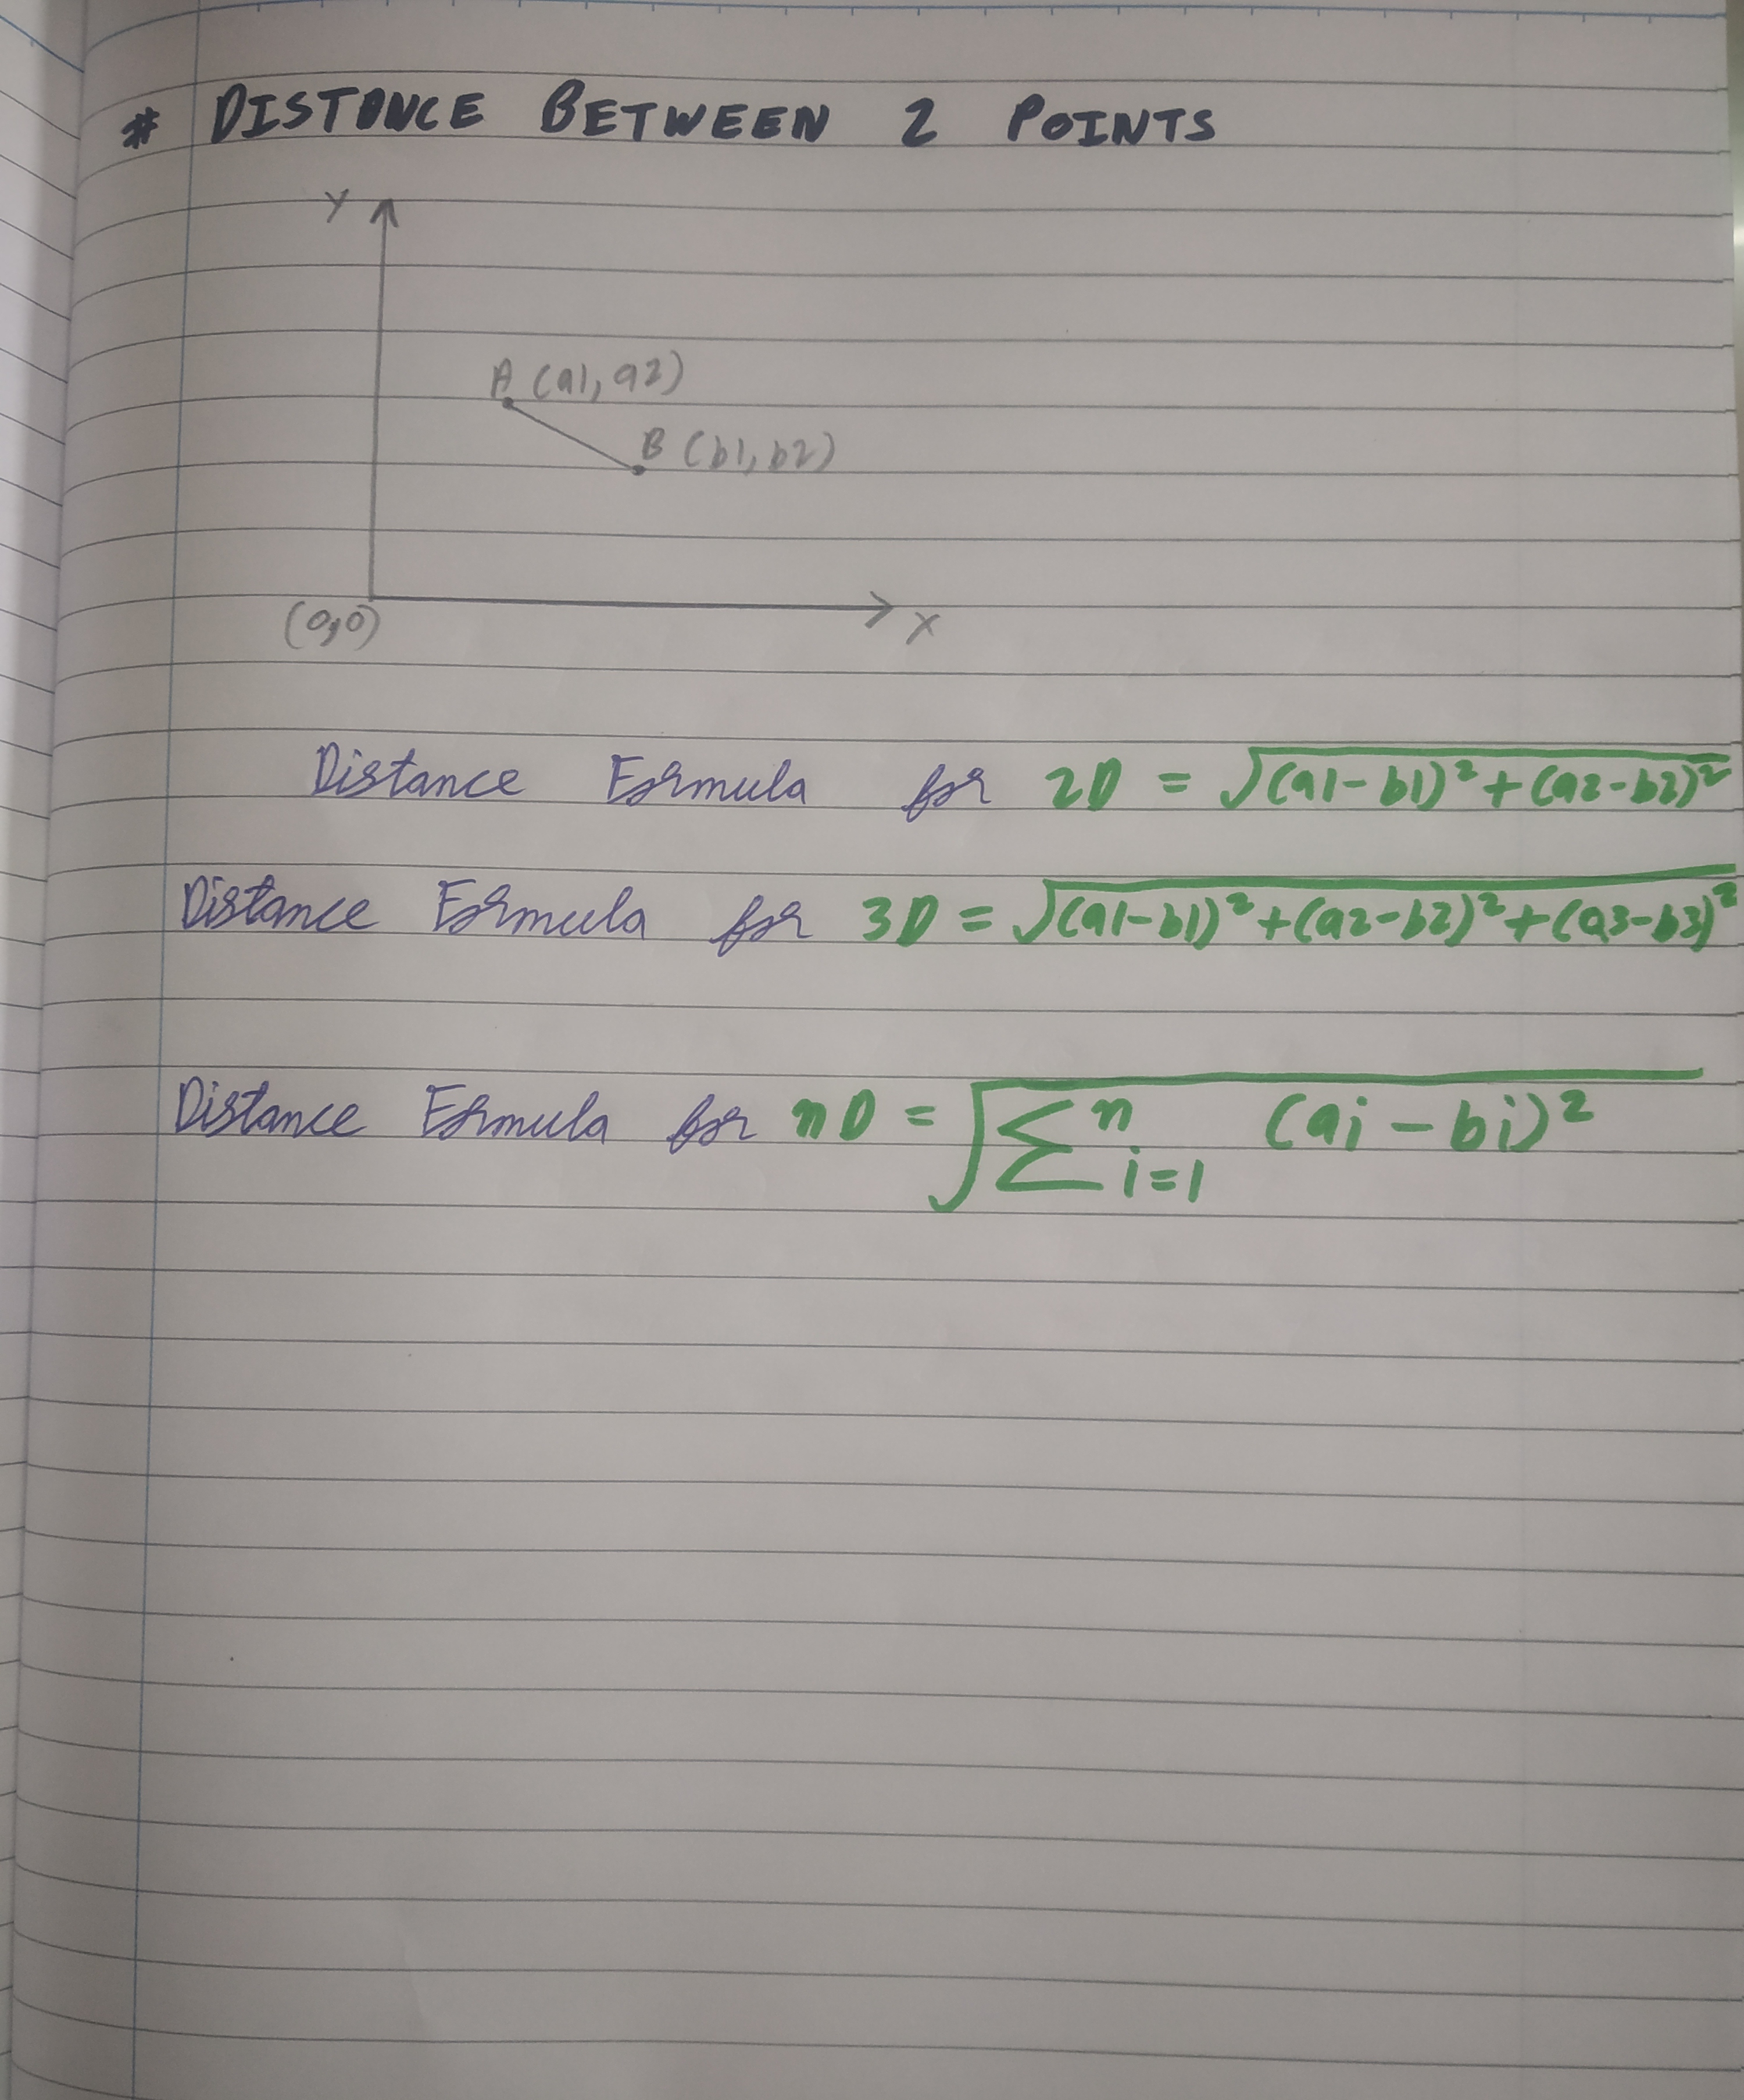 # DISTANCE BETWEEN 2 POINTS
Y
A (a1, a2)
B (b1, b2)
(0,0)
X
Distance Formula for 2D = √(a1-b1)² + (a2-b2)²
Distance Formula for 3D = √(a1-b1)² + (a2-b2)² + (a3-b3)²
Distance Formula for nD = √∑ⁿᵢ₌₁ (ai - bi)²